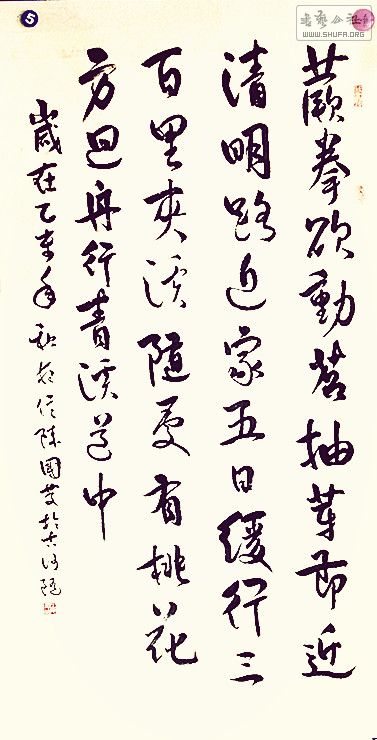 書藝公社
WWW.SHUFA.ORG
5
蕨拳欲動茗抽芽節近
清明路近家五日緩行三
百里夾溪隨處有桃花
方回舟行青溪道中
歲在乙未年秋 陳國 於古